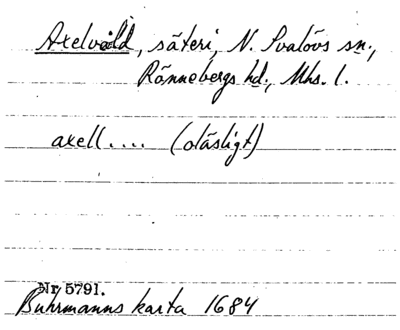 Axelvold, säteri, N. Svalövs sn.,
Rönnebergs hd., Mhs. l.
axell.... (oläsligt)
Nr 5791.
Buhrmanns karta 1684